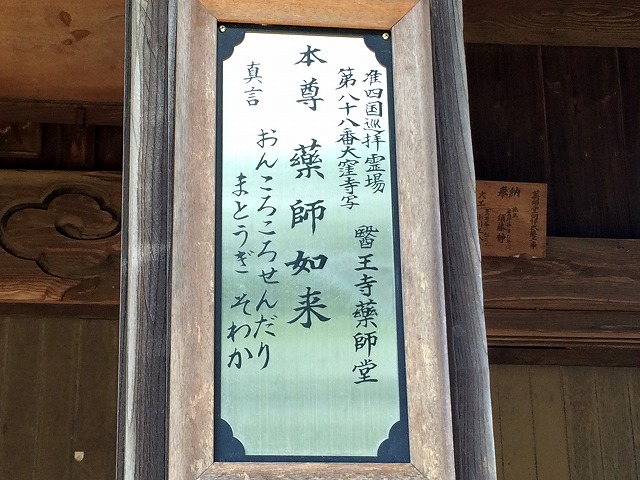 准四国巡拝霊場
第八十八番大窪寺写
醫王寺薬師堂
本尊 薬師如来
真言
おんころころせんだり
まとうぎ そわか
奉納